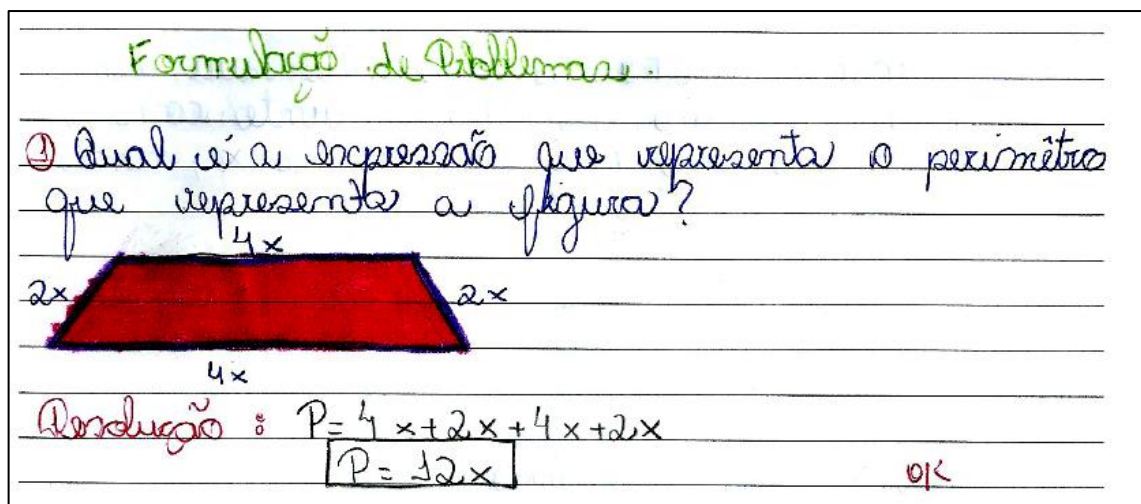 Formulação de Problemas.
① Qual é a expressão que representa o perimêtro
que representa a figura?
4x
2x
2x
4x
Resolução: P= 4x+2x+4x+2x
P= 12x
OK